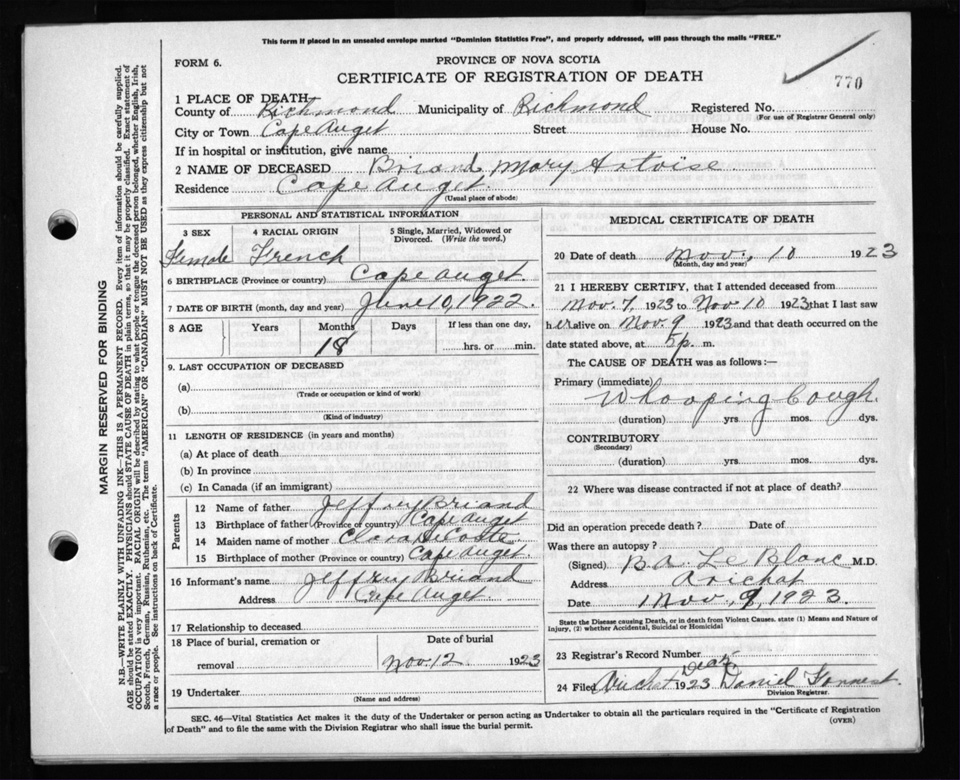 This form if placed in an unsealed envelope marked "Dominion Statistics Free", and properly addressed, will pass through the mails "FREE."
FORM 6.
PROVINCE OF NOVA SCOTIA
CERTIFICATE OF REGISTRATION OF DEATH
770
1 PLACE OF DEATH—
County of Richmond Municipality of Richmond Registered No.
(For use of Registrar General only)
City or Town Cape Auget Street House No.
If in hospital or institution, give name
2 NAME OF DECEASED Briand, Mary
Residence Cape Auget.
(Usual place of abode)
PERSONAL AND STATISTICAL INFORMATION
3 SEX 4 RACIAL ORIGIN 5 Single, Married, Widowed or Divorced. (Write the word.)
Female French
6 BIRTHPLACE (Province or country) Cape Auget.
7 DATE OF BIRTH (month, day and year) June 10, 1922.
8 AGE Years Months Days If less than one day,
18 hrs. or min.
9. LAST OCCUPATION OF DECEASED
(a)
(Trade or occupation or kind of work)
(b)
(Kind of industry)
11 LENGTH OF RESIDENCE (in years and months)
(a) At place of death
(b) In province
(c) In Canada (if an immigrant)
Parents
12 Name of father Jeffry Briand
13 Birthplace of father (Province or country) Cape Auget
14 Maiden name of mother Clara DeCoste
15 Birthplace of mother (Province or country) Cape Auget.
16 Informant's name Jeffry Briand
Address Cape Auget.
17 Relationship to deceased
18 Place of burial, cremation or removal Date of burial
Nov. 12 1923
19 Undertaker
(Name and address)
MEDICAL CERTIFICATE OF DEATH
20 Date of death Nov. 10 1923
(Month, day and year)
21 I HEREBY CERTIFY, that I attended deceased from
Nov. 7, 1923 to Nov 10 1923 that I last saw
her alive on Nov. 9 1923 and that death occurred on the
date stated above, at 5 p. m.
The CAUSE OF DEATH was as follows:—
Primary (immediate) Whooping Cough.
(duration) yrs. mos. dys.
CONTRIBUTORY
(Secondary)
(duration) yrs. mos. dys.
22 Where was disease contracted if not at place of death?
Did an operation precede death? Date of
Was there an autopsy?
(Signed) B.A. Le Blanc M.D.
Address Arichat
Date Nov. 9, 1923.
State the Disease causing Death, or in death from Violent Causes. state (1) Means and Nature of
Injury, (2) whether Accidental, Suicidal or Homicidal
23 Registrar's Record Number
24 Filed Arichat 1923 Daniel
Division Registrar.
SEC. 46—Vital Statistics Act makes it the duty of the Undertaker or person acting as Undertaker to obtain all the particulars required in the "Certificate of Registration
of Death" and to file the same with the Division Registrar who shall issue the burial permit.
(OVER)
MARGIN RESERVED FOR BINDING
N.B.—WRITE PLAINLY WITH UNFADING INK—THIS IS A PERMANENT RECORD. Every item of information should be carefully supplied.
AGE should be stated EXACTLY. PHYSICIANS should STATE CAUSE OF DEATH in plain terms, so that it may be properly classified. Exact statement of
OCCUPATION is very important. RACIAL ORIGIN will be described by stating to what people or tongue the deceased person belonged, whether English, Irish,
Scotch, French, German, Russian, Ruthenian, etc. The terms "AMERICAN" OR "CANADIAN" MUST NOT BE USED as they express citizenship but not
a race or people. See instructions on back of Certificate.